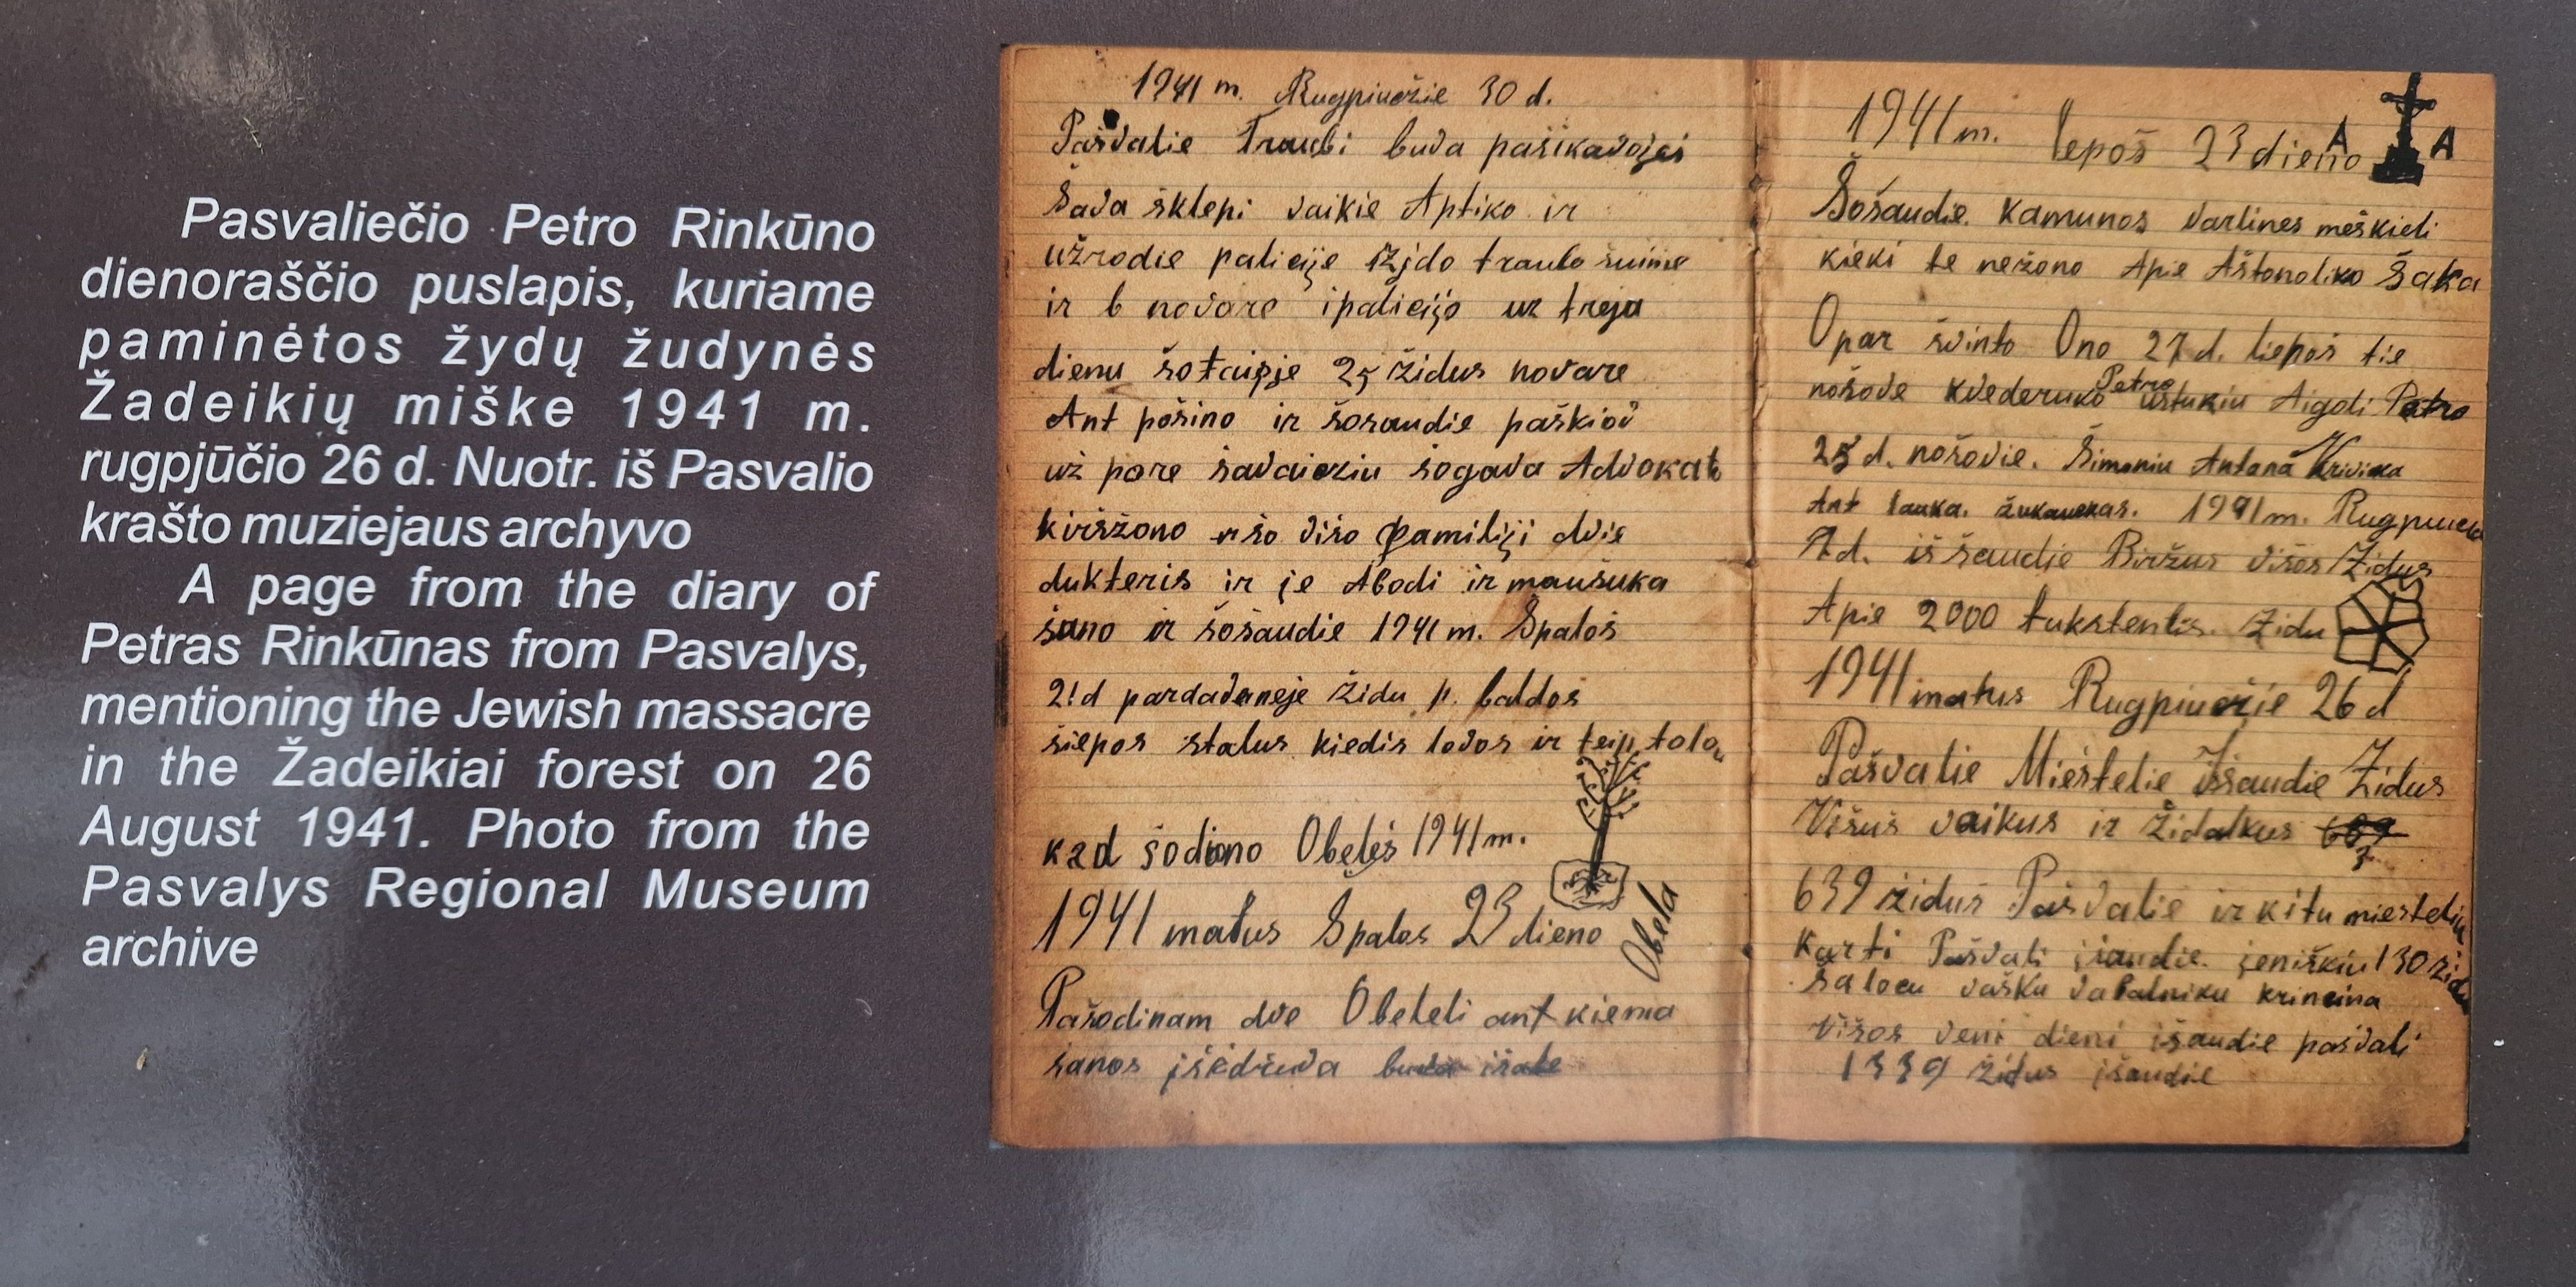 Pasvaliečio Petro Rinkūno
dienoraščio puslapis, kuriame
paminėtos žydų žudynės
Žadeikių miške 1941 m.
rugpjūčio 26 d. Nuotr. iš Pasvalio
krašto muziejaus archyvo
A page from the diary of
Petras Rinkūnas from Pasvalys,
mentioning the Jewish massacre
in the Žadeikiai forest on 26
August 1941. Photo from the
Pasvalys Regional Museum
archive
1941 m. Rugpiučie 30 d.
Pašvalie Traubi buva pašikavojęs
šava šklepi vaikie Aptiko ir
užrodie palicije
ir novare ipalicijo uz treja
dienu 25 židus novare
Ant pošino ir šosaudie
už pore šavaicziu šogava Advokat
višo familiji dvie
dukteris ir je Abodi ir maušuka
šano ir šošaudie 1941 m. Špaloš
2!d židu p. baldos
šiepos stalus kiedis lovos ir teip tola
kad šodieno Obeles 1941 m.
1941 matus Spalos 23 dieno
Obela
Pašodinam dve Obeleli ant kiema
šanos
1941 m. lepoš 23 dieno
A A
Šošaudie kamunos varlines meškieli
kieki te nežono Apie Aštonoliko šaka
Opar švinto Ono 27 d. liepoš tie
nošove kvederuko Petro Aigoli Petro
25 d. nošovie. Šimoniu Antana
Ant lauka. 1941 m.
7 d. iššaudie Biržus višos Židus
Apie 2000 tukstentis. židu
1941 matus Rugpiučzie 26 d
Pašvalie Miestelie Išsaudie Židus
Višus vaikus ir Židalkus
639 židus Pašvalie ir kitu miesteliu
Karti Pašvali išaudie. jeniškiu 130 židu
šalocu vašku vabalniku krincina
Višos veni dieni išaudie pašvali
1339 židus išaudie